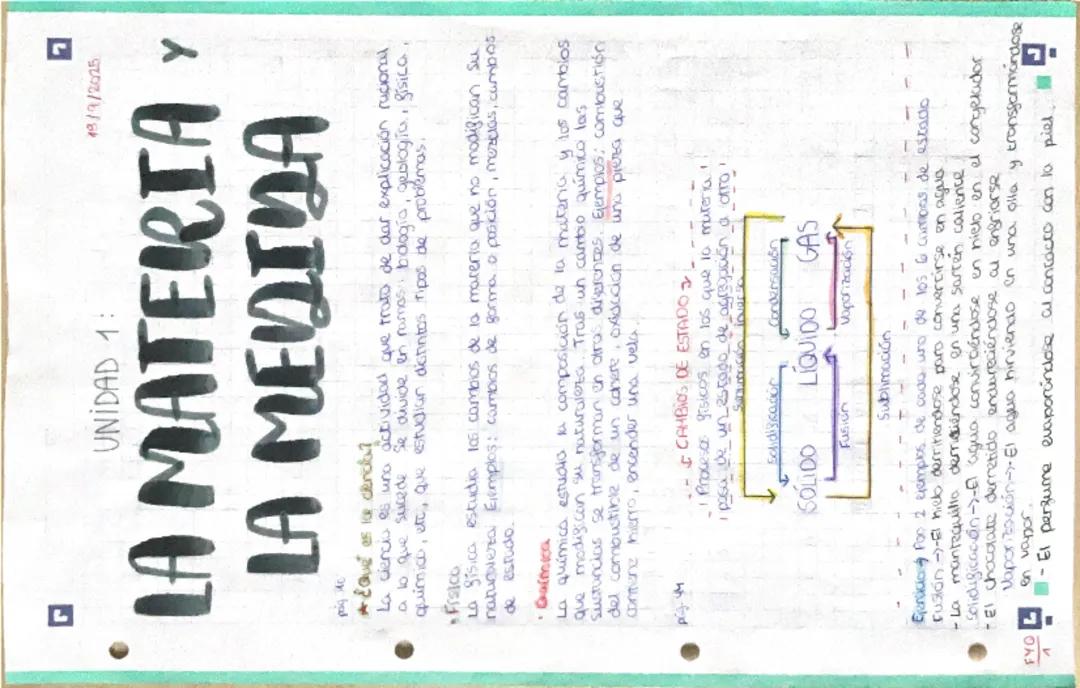 19/9/2025
UNIDAD 1:
LA MATERIA Y
LA MEDIDA
pág 10
¿Qué es la ciencia?
La ciencia es una actividad que trata de dar explicación racional
a lo que sucede. Se divide en ramas: biología, geología, física,
química, etc, que estudian distintos tipos de problemas.
Física
La física estudia los cambios de la materia que no modifican su
naturaleza. Ejemplos: cambios de forma o posición, mezclas, cambios
de estado.
Química
La química estudia la composición de la materia, y los cambios
que modifican su naturaleza. Tras un cambio químico las
sustancias se transforman en otras diferentes. Ejemplos: combustión
del combustible de un cohete, oxidación de una pieza que
contiene hierro, encender una vela.
pág 44
CAMBIOS DE ESTADO
Procesos físicos en los que la materia
pasa de un estado de agregación a otro
Sublimación inversa
Solidificación Condensación
SÓLIDO LÍQUIDO GAS
Fusión Vaporización
Sublimación
Pon 2 ejemplos de cada uno de los 6 cambios de estado
Fusión -> -El hielo derritiéndose para convertirse en agua
- La mantequilla derritiéndose en una sartén caliente
Solidificación -> -El agua convirtiéndose en hielo en el congelador
- El chocolate derretido endureciéndose al enfriarse
Vaporización -> El agua hirviendo en una olla y transformándose
en vapor.
- El perfume evaporándose al contacto con la piel
FYQ
1